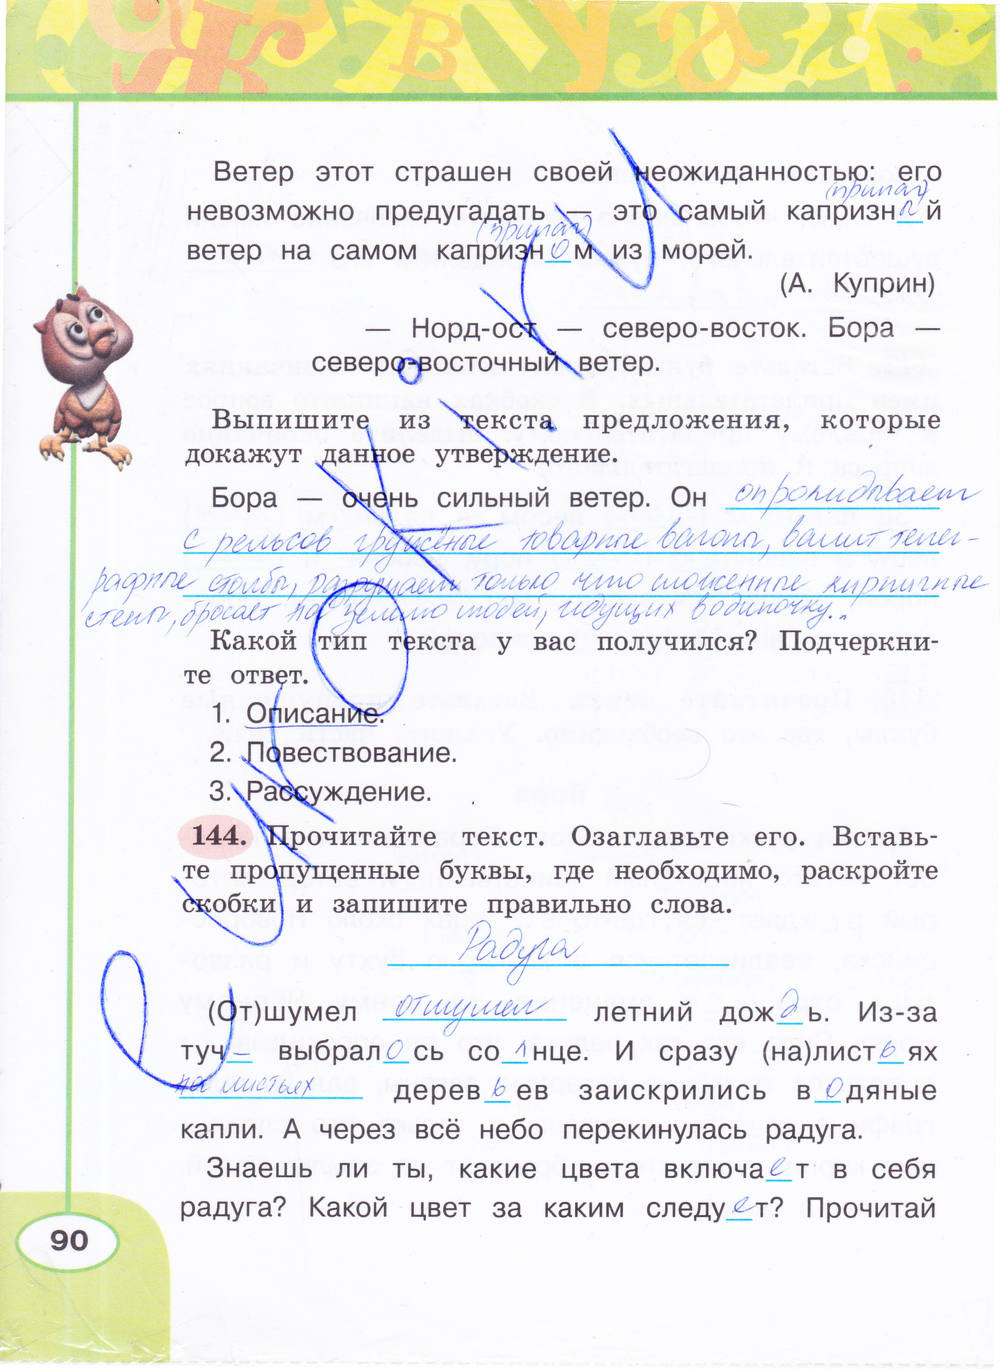 Ветер этот страшен своей неожиданностью: его
(прилаг)
невозможно предугадать — это самый капризный
(прилаг)
ветер на самом капризном из морей.
(А. Куприн)
— Норд-ост — северо-восток. Бора —
северо-восточный ветер.
Выпишите из текста предложения, которые
докажут данное утверждение.
Бора — очень сильный ветер. Он опрокидывает
с рельсов гружёные товарные вагоны, валит телег-
рафные столбы, разрушает только что сложенные кирпичные
стены, бросает на землю людей, идущих в одиночку..
Какой тип текста у вас получился? Подчеркни-
те ответ.
1. Описание.
2. Повествование.
3. Рассуждение.
144. Прочитайте текст. Озаглавьте его. Вставь-
те пропущенные буквы, где необходимо, раскройте
скобки и запишите правильно слова.
Радуга
(От)шумел отшумел летний дождь. Из-за
туч– выбралось солнце. И сразу (на)листьях
на листьях деревьев заискрились водяные
капли. А через всё небо перекинулась радуга.
Знаешь ли ты, какие цвета включает в себя
радуга? Какой цвет за каким следует? Прочитай
90
euroki.ru